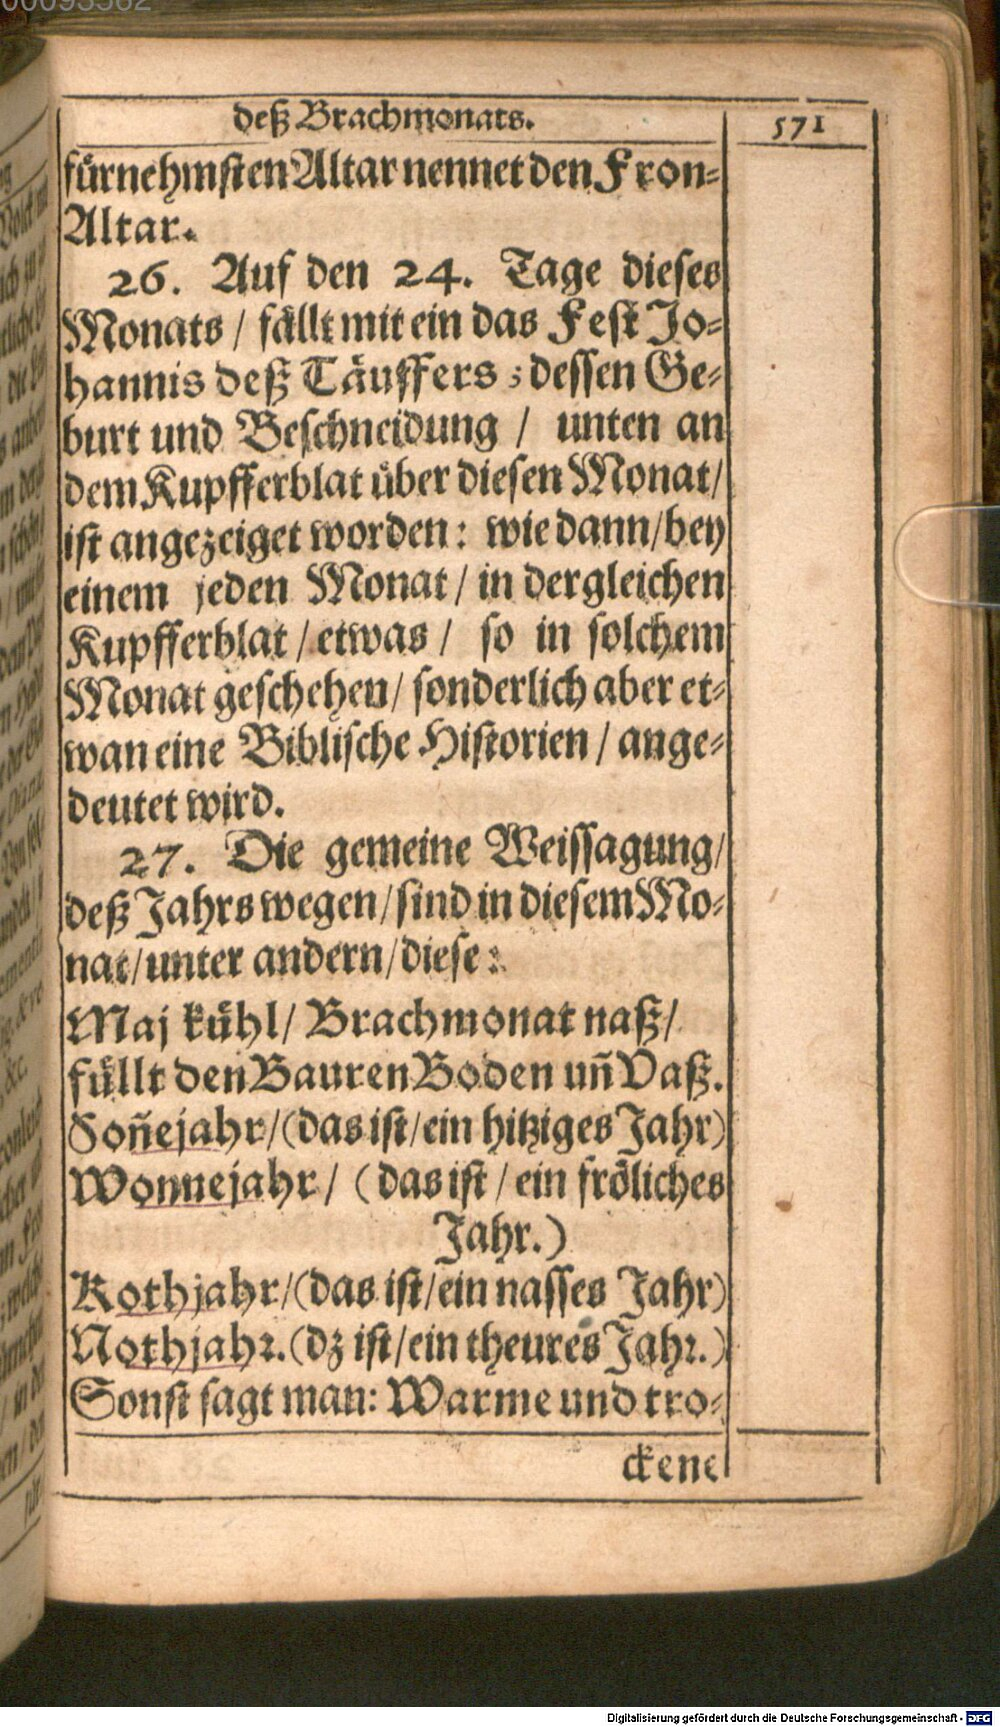 00093562
deß Brachmonats.
571
fürnehmsten Altar nennet den Fron-
Altar.
26. Auf den 24. Tage dieses
Monats / fällt mit ein das Fest Jo-
hannis deß Täuffers; dessen Ge-
burt und Beschneidung / unten an
dem Kupfferblat über diesen Monat /
ist angezeiget worden: wie dann / bey
einem jeden Monat / in dergleichen
Kupfferblat / etwas / so in solchem
Monat geschehen / sonderlich aber et-
wan eine Biblische Historien / ange-
deutet wird.
27. Die gemeine Weissagung /
deß Jahrs wegen / sind in diesem Mo-
nat / unter andern / diese:
Maj kühl / Brachmonat naß /
füllt den Bauren Boden uñ Vaß.
Soñejahr / (das ist / ein hitziges Jahr)
Wonnejahr / (das ist / ein fröliches
Jahr.)
Kothjahr / (das ist / ein nasses Jahr)
Nothjahr. (dz ist / ein theures Jahr.)
Sonst sagt man: Warme und tro-
ckene
Digitalisierung gefördert durch die Deutsche Forschungsgemeinschaft - DFG